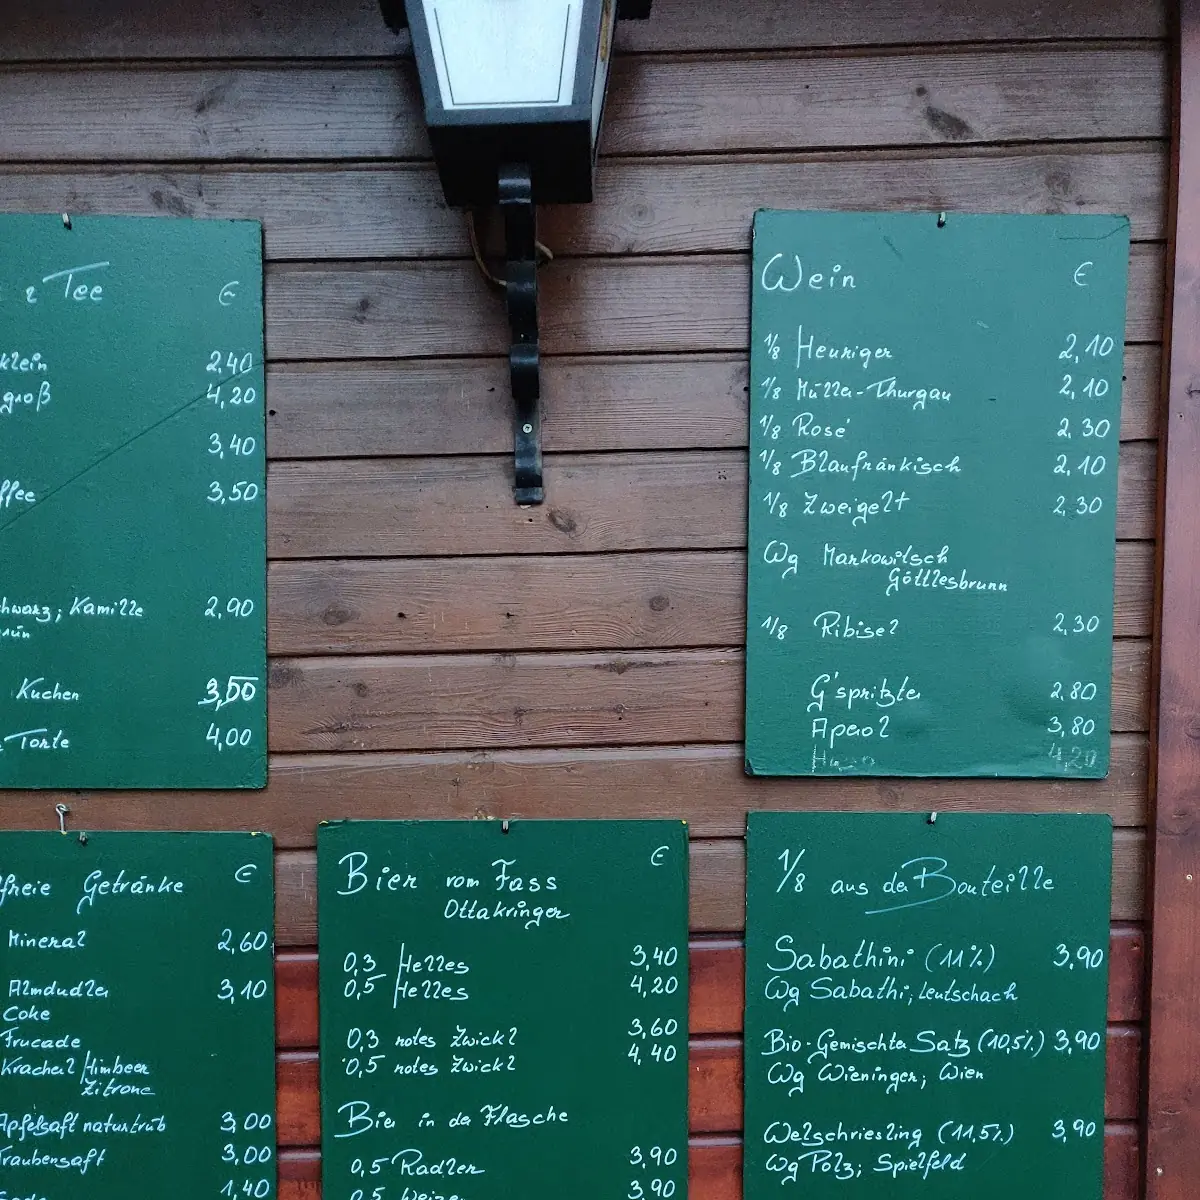 & Tee €
klein 2,40
groß 4,20
3,40
ffee 3,50
hwarz, Kamille 2,90
rün
Kuchen 3,50
Torte 4,00
Wein €
1/8 Heuriger 2,10
1/8 Müller-Thurgau 2,10
1/8 Rosé 2,30
1/8 Blaufränkisch 2,10
1/8 Zweigelt 2,30
Wg Markowitsch
Göttlesbrunn
1/8 Ribisel 2,30
G'spritzter 2,80
Aperol 3,80
4,20
freie Getränke €
Mineral 2,60
Almdudler 3,10
Coke
Frucade
Kracherl Himbeer
Zitrone
Apfelsaft naturtrüb 3,00
Traubensaft 3,00
1,40
Bier vom Fass €
Ottakringer
0,3 Helles 3,40
0,5 Helles 4,20
0,3 rotes Zwickl 3,60
0,5 rotes Zwickl 4,40
Bier in der Flasche
0,5 Radler 3,90
0,5 Weizen 3,90
1/8 aus der Bouteille
Sabathini (11%) 3,90
Wg Sabathi, Leutschach
Bio-Gemischter Satz (10,5%) 3,90
Wg Wieninger, Wien
Welschriesling (11,5%) 3,90
Wg Polz, Spielfeld